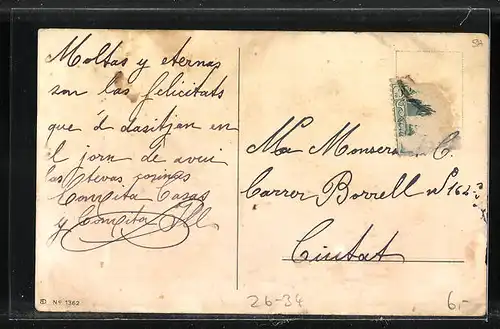 Moltas y eternas
son las felicitats
que d dasitjan en
el jorn de avui
las tevas cosinas
Conxita Casas
y Conxita
Na Monserat C.
Carrer Borrell nº 162
Ciutat
Nº 1362
26-34
6.-